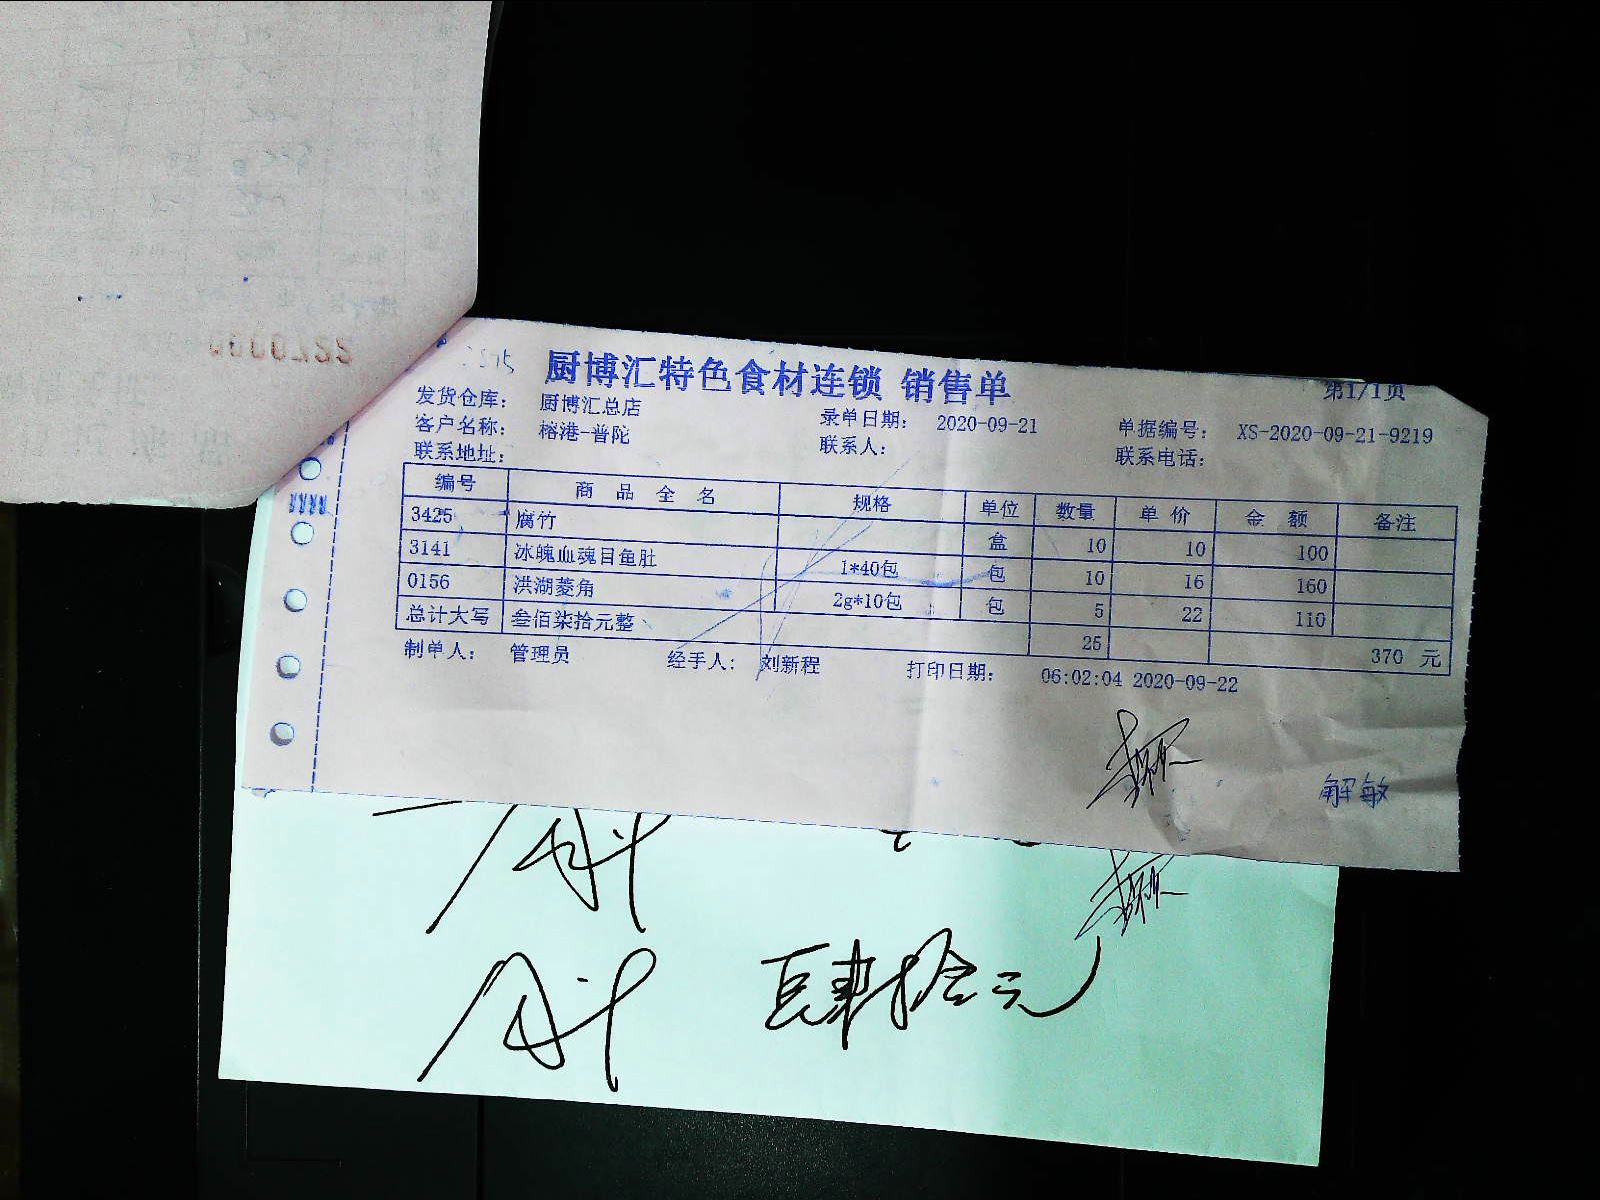 0000722
厨博汇特色食材连锁 销售单
第1/1页
发货仓库: 厨博汇总店 录单日期: 2020-09-21 单据编号: XS-2020-09-21-9219
客户名称: 榕港-普陀 联系人: 联系电话:
联系地址:
编号 商品全名 规格 单位 数量 单价 金额 备注
3425 腐竹 盒 10 10 100
3141 冰魄血魂目鱼肚 1*40包 包 10 16 160
0156 洪湖菱角 2g*10包 包 5 22 110
总计大写 叁佰柒拾元整 25 370 元
制单人: 管理员 经手人: 刘新程 打印日期: 06:02:04 2020-09-22
解敏
肆拾元